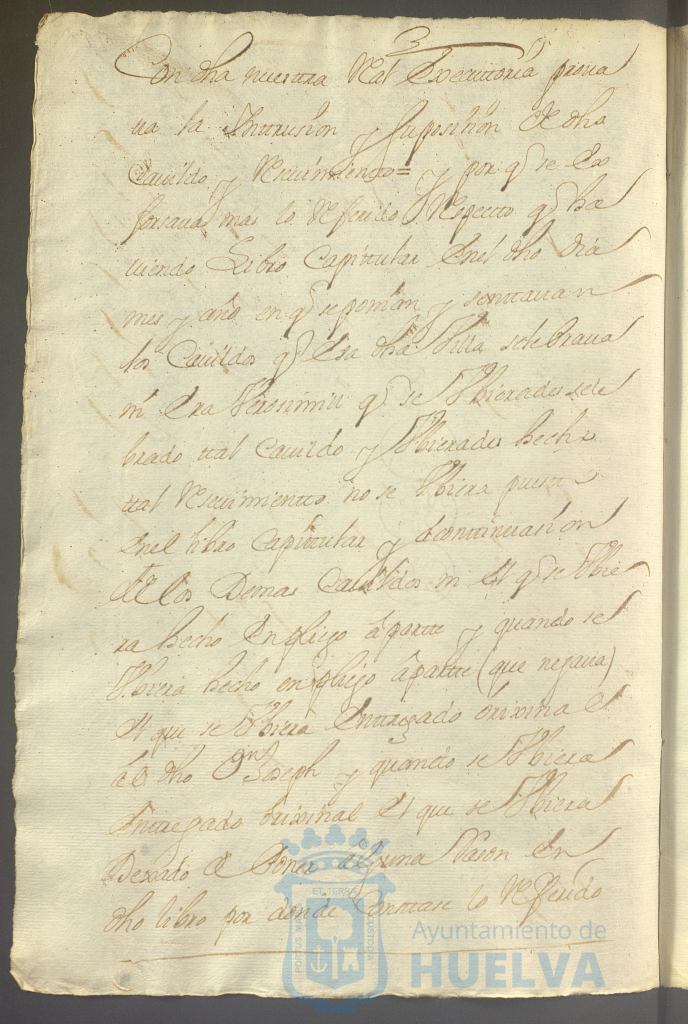 3
Con dha nuestra Real Executtoria prova
va la Yntrusion y suposision de dho
Cavildo y Resevimiento = y por q se Ex
forsava mas lo Referido Respecto q ha
viendo Libro Capittular Enel dho Dia
mes y año en q se ponian y senttavan
los Cavildos q Esa dha Villa selebrava
ni Era Verosimil q se Vbiera de sele
brado ttal Cavildo y Vbierades hecho
ttal Resevimientto no se Vbiera puestto
Enel libro Capittular y Continuasion
de los Demas Cavildos ni El q se Vbie
ra hecho En pliego â partte y quando se
Vbiera hecho en pliego âpartte (que negava)
El que se Vbiera Enttregado orixinal
â dho Dn Joseph y quando se Vbiera
Enttregado orixinal El que se Vbiera
Dexado de Poner alguna Rason En
dho libro por donde Constase lo Referido
PORTUS MARIS
ET TERRAE
CUSTODIA
Ayuntamiento de
HUELVA